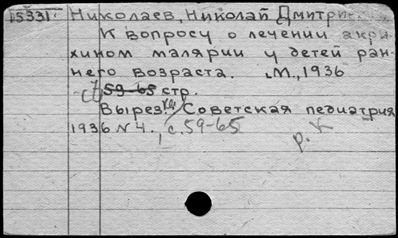 15331. Николаев, Николай Дмитрие
К вопросу о лечении акри-
хином малярии у детей ран-
него возраста. М., 1936
59-65 стр.
Вырез. Советская педиатрия
1936 № 4. с. 59-65
р. К